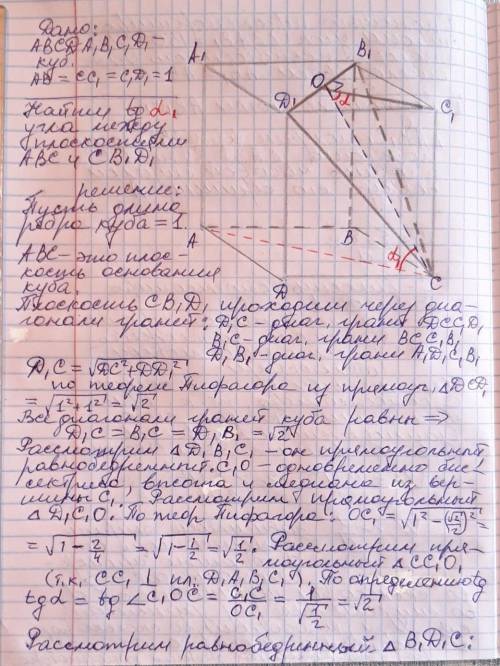 Дано:
ABCDA₁B₁C₁D₁ –
куб.
AB = CC₁ = C₁D₁ = 1
Найти tg α₁
угла между
плоскостями
ABC и CB₁D₁
A₁
B₁
O
α
D₁
C₁
A
B
D
C
α₁
решение:
Пусть длина
ребра куба = 1.
ABC – это плос-
кость основания
куба.
Плоскость CB₁D₁ проходит через диа-
гонали граней: D₁C – диаг. грани DCC₁D₁
B₁C – диаг. грани BCC₁B₁
D₁B₁ – диаг. грани A₁D₁C₁B₁
D₁C = √DC² + DD₁²
по теореме Пифагора из прямоуг. △DCD₁
= √1² + 1² = √2
Все диагонали граней куба равны ⇒
D₁C = B₁C = D₁B₁ = √2
Рассмотрим △D₁B₁C₁ – он прямоугольный
равнобедренный. C₁O – одновременно бис-
сектриса, высота и медиана из вер-
шины C₁. Рассмотрим прямоугольный
△D₁C₁O: По теор Пифагора: OC₁ = √1² – (√2/2)² =
= √1 – 2/4 = √1 – 1/2 = √1/2. Рассмотрим пря-
моугольный △CC₁O₁
(т.к. CC₁ ⊥ пл. D₁A₁B₁C₁). По определению tg
tg α = tg ∠C₁OC = C₁C/OC₁ = 1/√1/2 = √2
Рассмотрим равнобедренный △B₁D₁C: